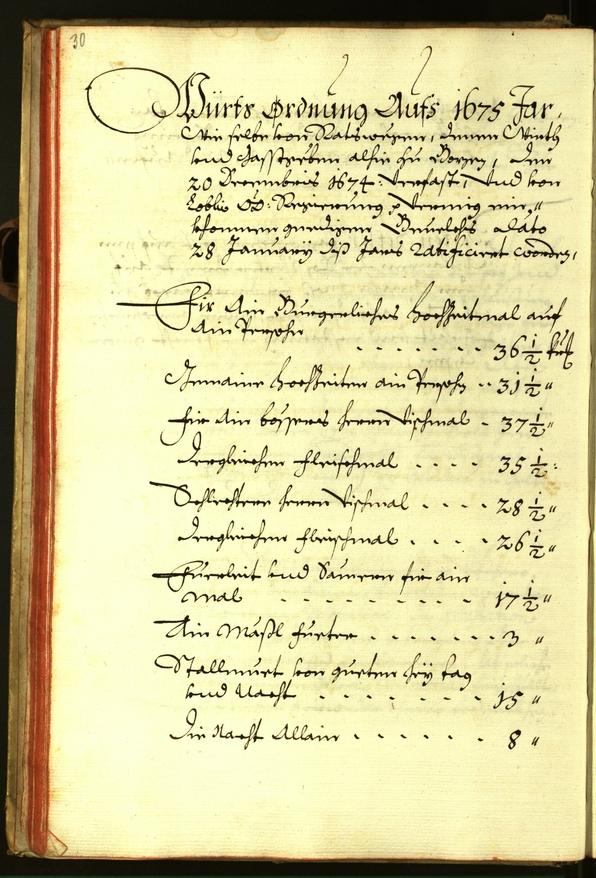 30
Würts Ordnung Aufs 1675 Jar,
Wie selbe von Ratswegen, denen Wirth
und Gasstgeben alhie zu Bozen, den
20 Decembris 1674: verfast, und von
Löbl: OÖ: Regierung
khommen gnedigen Bevelchs Dato
28 January diß Jars Ratificiert worden,
Fir Ain Burgerliches Hochzeitmal auf
Ain Persohn
. . . . . . . 36 1/2 kr
Gemaine Hochzeiten ain Persohn . . 31 1/2 "
Für Ain bössers Herrn Vischmal . 37 1/2 "
dergleichen Fleischmal . . . . 35 1/2 :
Schlechtern Herrn Vischmal . . . . 28 1/2 "
dergleichen Fleischmal . . . . 26 1/2 "
Fuerleit und Sämern fir ain
Mal . . . . . . . 17 1/2 "
Ain Mäßl Fueter . . . . . . . 3 "
Stallmuet von gueten Hey tag
und Nacht . . . . . . . 15 "
Die Nacht Allain . . . . . . 8 "